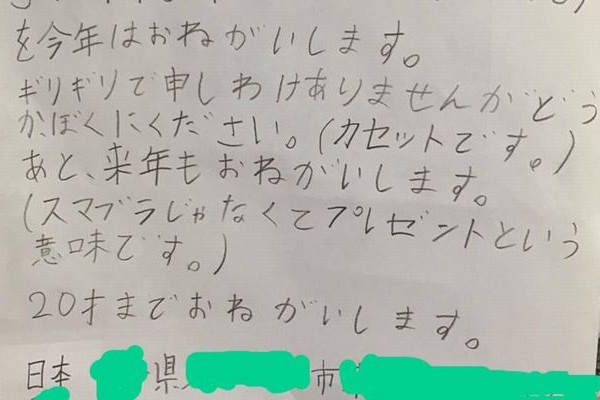 を今年はおねがいします。
ギリギリで申しわけありませんがどう
かぼくにください。(カセットです。)
あと、来年もおねがいします。
(スマブラじゃなくてプレゼントという
意味です。)
20才までおねがいします。
日本 県 市